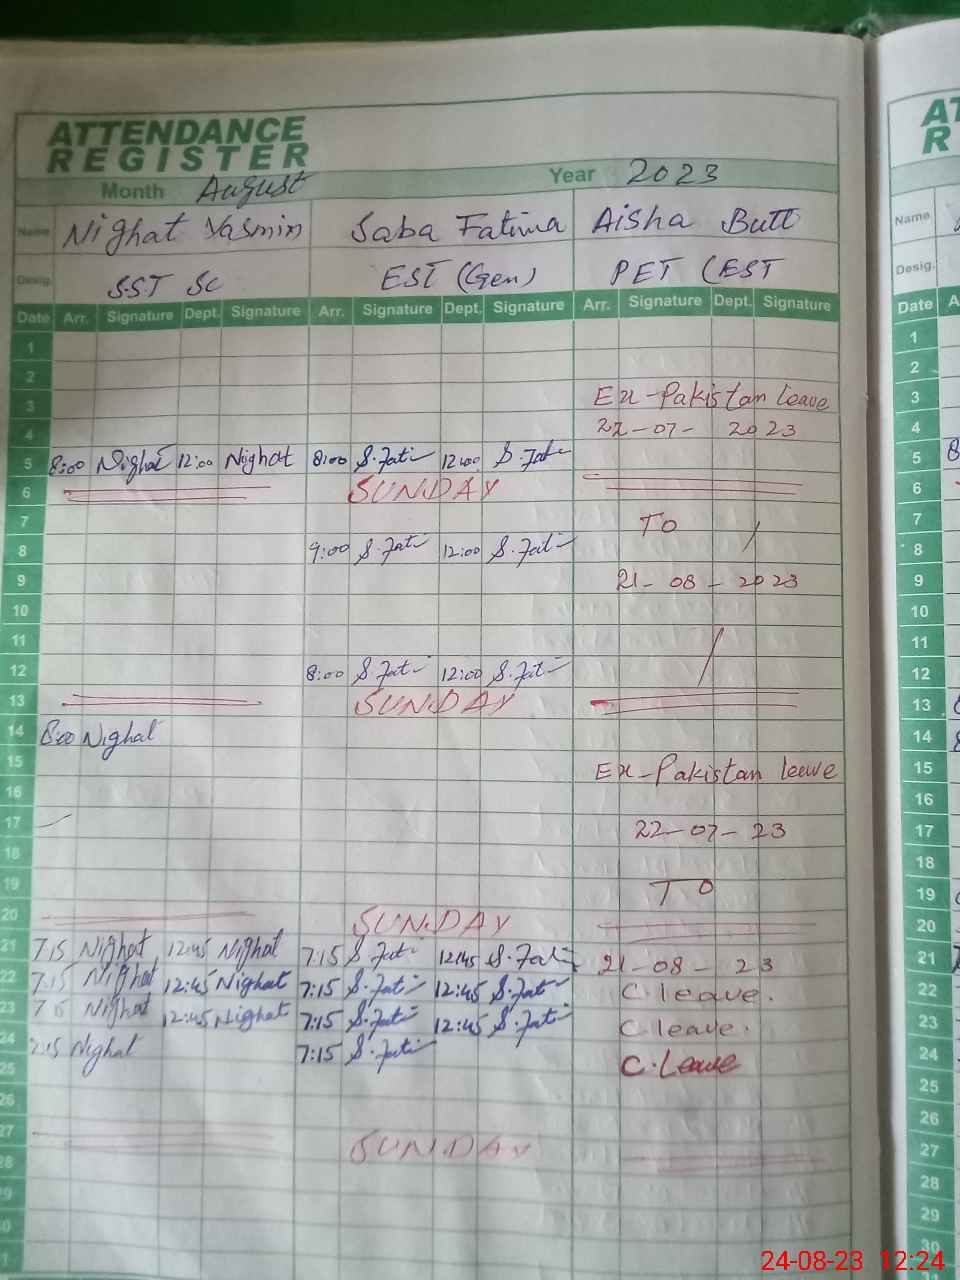 ATTENDANCE
REGISTER
Month August Year 2023
Name Nighat Yasmin Saba Fatima Aisha Butt
Desig. SST Sc EST (Gen) PET (EST
Date Arr. Signature Dept. Signature Arr. Signature Dept. Signature Arr. Signature Dept. Signature
1
2
3 Ex-Pakistan leave
4 22-07- 2023
5 8:00 Nighat 12:00 Nighat 8:00 S.Fati 12:00 S.Fati
6 SUNDAY
7 TO
8 9:00 S.Fati 12:00 S.Fati
9 21-08-2023
10
11
12 8:00 S.Fati 12:00 S.Fati
13 SUNDAY
14 8:00 Nighat
15 Ex-Pakistan leave
16
17 22-07-23
18
19 TO
20 SUNDAY
21 7:15 Nighat 12:45 Nighat 7:15 S.Fati 12:45 S.Fati 21-08-23
22 7:15 Nighat 12:45 Nighat 7:15 S.Fati 12:45 S.Fati C.leave.
23 Nighat 12:45 Nighat 7:15 S.Fati 12:45 S.Fati C.leave.
24 Nighat 7:15 S.Fati C.Leave
25
26
27 SUNDAY
28
Name
Desig.
Date
1
2
3
4
5
6
7
8
9
10
11
12
13
14
15
16
17
18
19
20
21
22
23
24
25
26
27
28
29
30
24-08-23 12:24